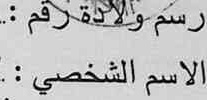 رسم ولادة رقم :
الاسم الشخصي :